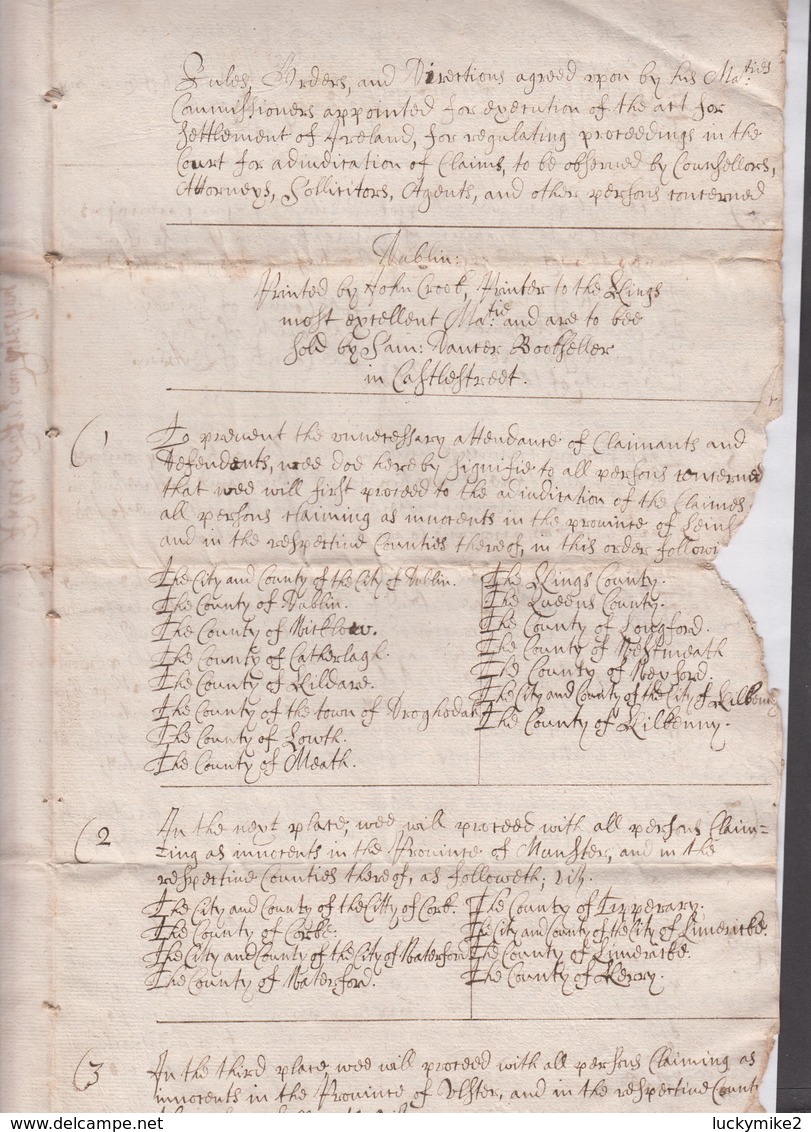 Rules, Orders, and Directions agreed upon by his Ma:ties
Commissioners appointed for execution of the act for
settlement of Ireland, for regulating proceedings in the
Court for adiudication of Claims, to be observed by Counsellors,
Attorneys, Sollicitors, Agents, and other persons concerned
Dublin:
Printed by John Crook, Printer to the Kings
most excellent Ma:tie and are to bee
sold by Sam: Dancer Bookseller
in Castlestreet.
(1
To prevent the unnecessary attendance of Claimants and
Defendents, wee doe hereby signifie to all persons concerned
that wee will first proceed to the adiudication of the Claimes
all persons claiming as innocents in the province of Leins
and in the respective Counties thereof, in this order followi
The City and County of the City of Dublin.
The County of Dublin.
The County of Wicklow.
The County of Catherlagh.
The County of Kildare.
The County of the town of Droghedah
The County of Lowth.
The County of Meath.
The Kings County.
The Queens County.
The County of Longford.
The County of Westmeath
The County of Wexford.
The City and County of the City of Kilkenny
The County of Kilkenny.
(2
In the next place, wee will proceed with all persons Claim=
=ing as innocents in the Province of Munster, and in the
respective Counties thereof, as followeth; viz.
The City and County of the Citty of Cork.
The County of Corke:
The City and County of the City of Waterford
The County of Waterford.
The County of Tipperary.
The City and County of the City of Limericke.
The County of Limericke.
The County of Kerry.
(3
In the third place, wee will proceed with all persons Claiming as
innocents in the Province of Ulster, and in the respective Count
luckymike2